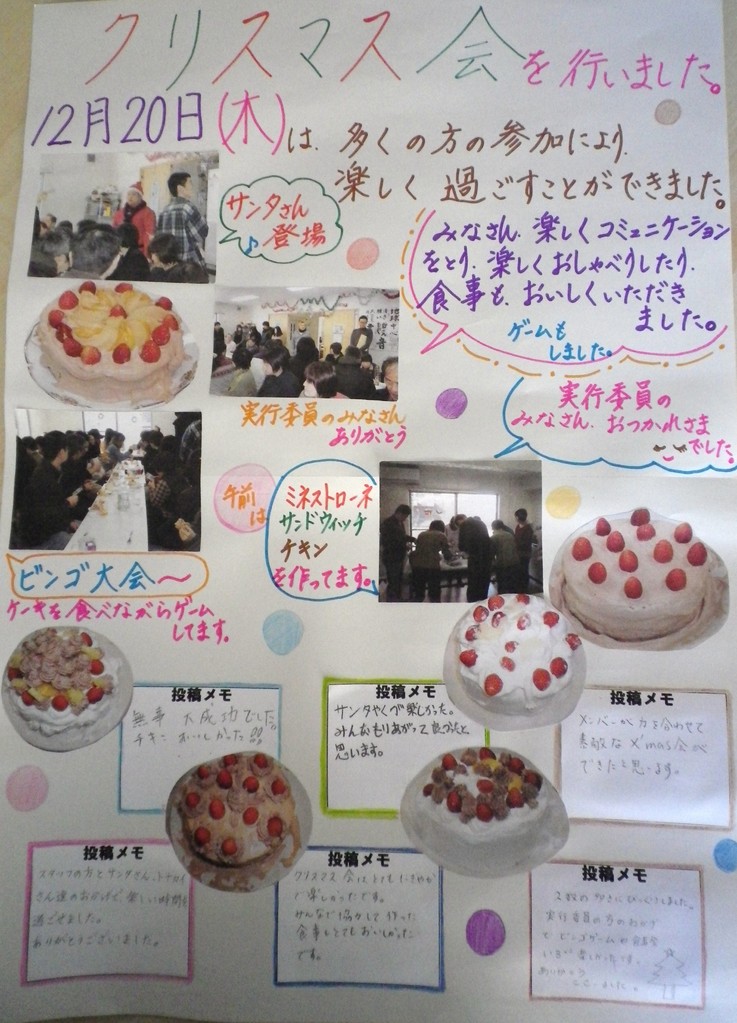 クリスマス会を行いました。
12月20日(木)は、多くの方の参加により、
楽しく過ごすことができました。
サンタさん
♪登場
みなさん、楽しくコミュニケーション
をとり、楽しくおしゃべりしたり、
食事も、おいしくいただき
ました。
ゲームも
しました。
実行委員のみなさん
ありがとう
実行委員の
みなさん、おつかれさま
でした。
午前
は
ミネストローネ
サンドウィッチ
チキン
を作ってます。
ビンゴ大会〜
ケーキを食べながらゲーム
してます。
投稿メモ
無事 大成功でした。
チキン おいしかった!!
投稿メモ
サンタやくが楽しかった。
みんなもりあがって
思います。
投稿メモ
メンバーが力を合わせて
素敵なX'mas会が
できたと思います。
投稿メモ
スタッフの方とサンタさん、トナカイ
さん達のおかげで、楽しい時間を
過ごせました。
ありがとうございました。
投稿メモ
クリスマス会はとてもにぎやか
で楽しかったです。
みんなで協力して作った
食事もとてもおいしかった
です。
投稿メモ
実行委員の方のおかげ
で ビンゴゲームや
楽しかったです。